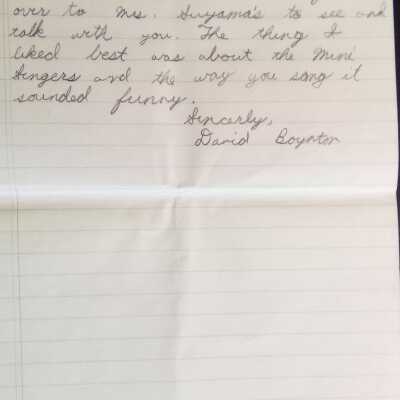 over to Mrs. Suyama's to see and
talk with you. The thing I
liked best was about the Mini
Singers and the way you sang it
sounded funny.
Sincerly,
David Boynton